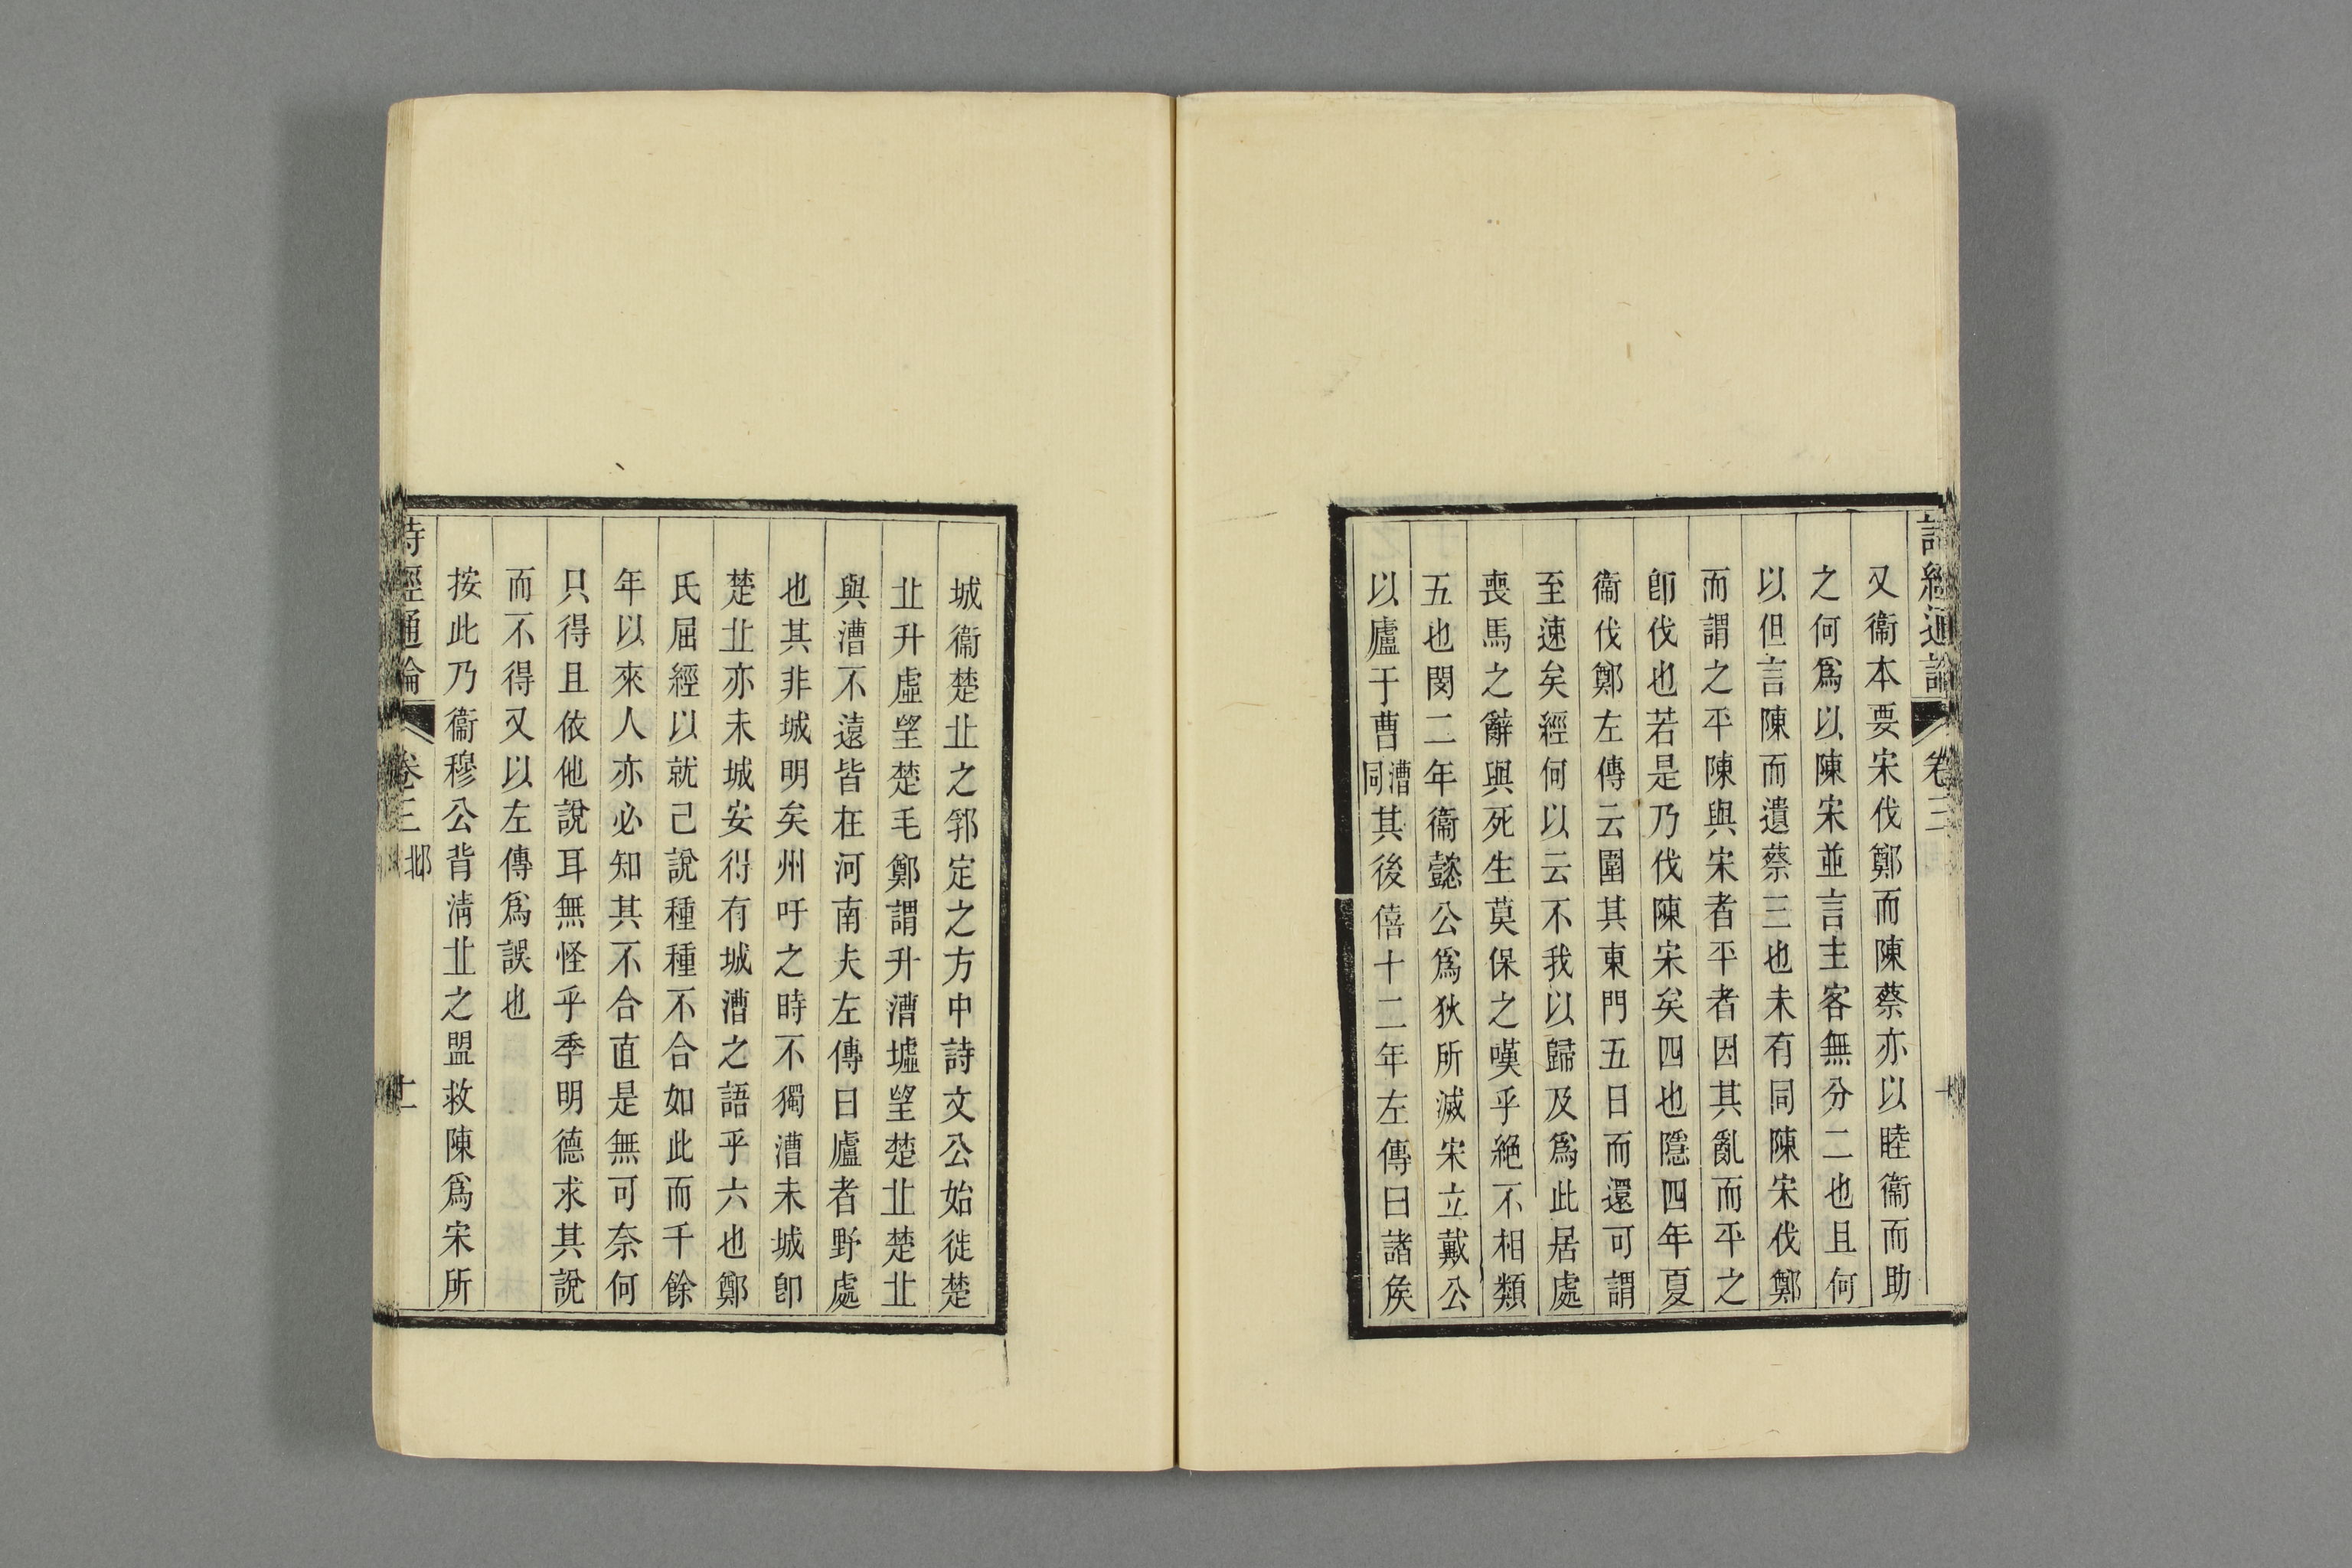 詩經通論 卷三 十
又衞本要宋伐鄭而陳蔡亦以睦衞而助
之何爲以陳宋並言主客無分二也且何
以但言陳而遺蔡三也未有同陳宋伐鄭
而謂之平陳與宋者平者因其亂而平之
卽伐也若是乃伐陳宋矣四也隱四年夏
衞伐鄭左傳云圍其東門五日而還可謂
至速矣經何以云不我以歸及爲此居處
喪馬之辭與死生莫保之嘆乎絕不相類
五也閔二年衞懿公爲狄所滅宋立戴公
以廬于曹漕同其後僖十二年左傳曰諸矦
城衞楚丠之郛定之方中詩文公始徙楚
丠升虛望楚毛鄭謂升漕墟望楚丠楚丠
與漕不遠皆在河南夫左傳曰廬者野處
也其非城明矣州吁之時不獨漕未城卽
楚丠亦未城安得有城漕之語乎六也鄭
氏屈經以就己說種種不合如此而千餘
年以來人亦必知其不合直是無可奈何
只得且依他說耳無怪乎季明德求其說
而不得又以左傳爲誤也
按此乃衞穆公背淸丠之盟救陳爲宋所
詩經通論 卷三 邶 十一